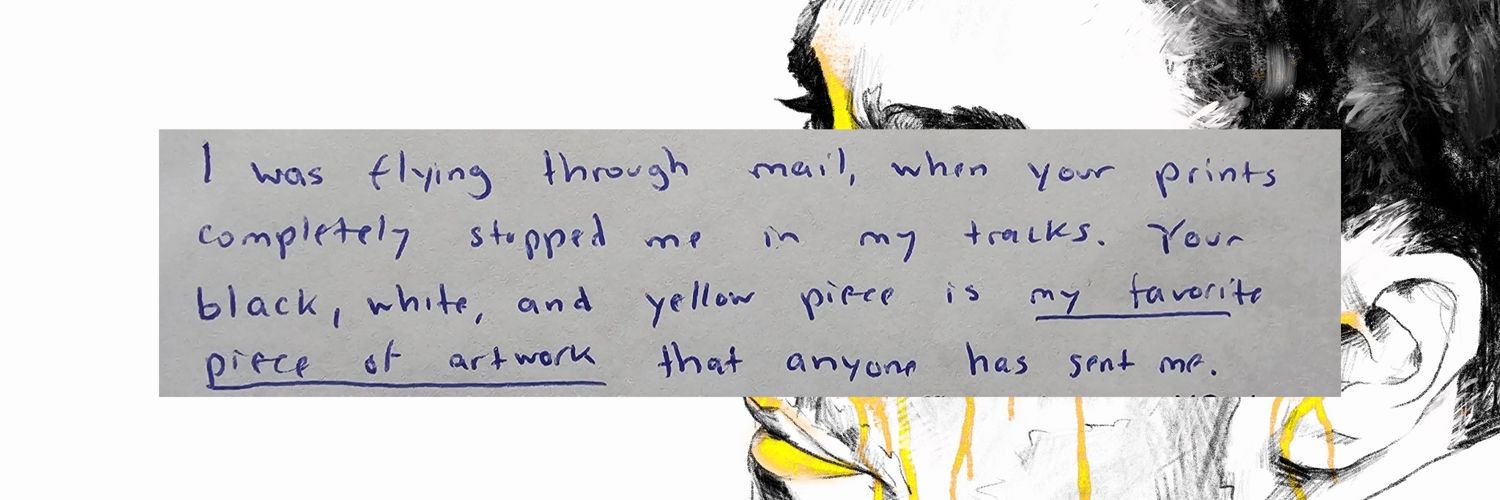 I was flying through mail, when your prints
completely stopped me in my tracks. Your
black, white, and yellow piece is my favorite
piece of artwork that anyone has sent me.